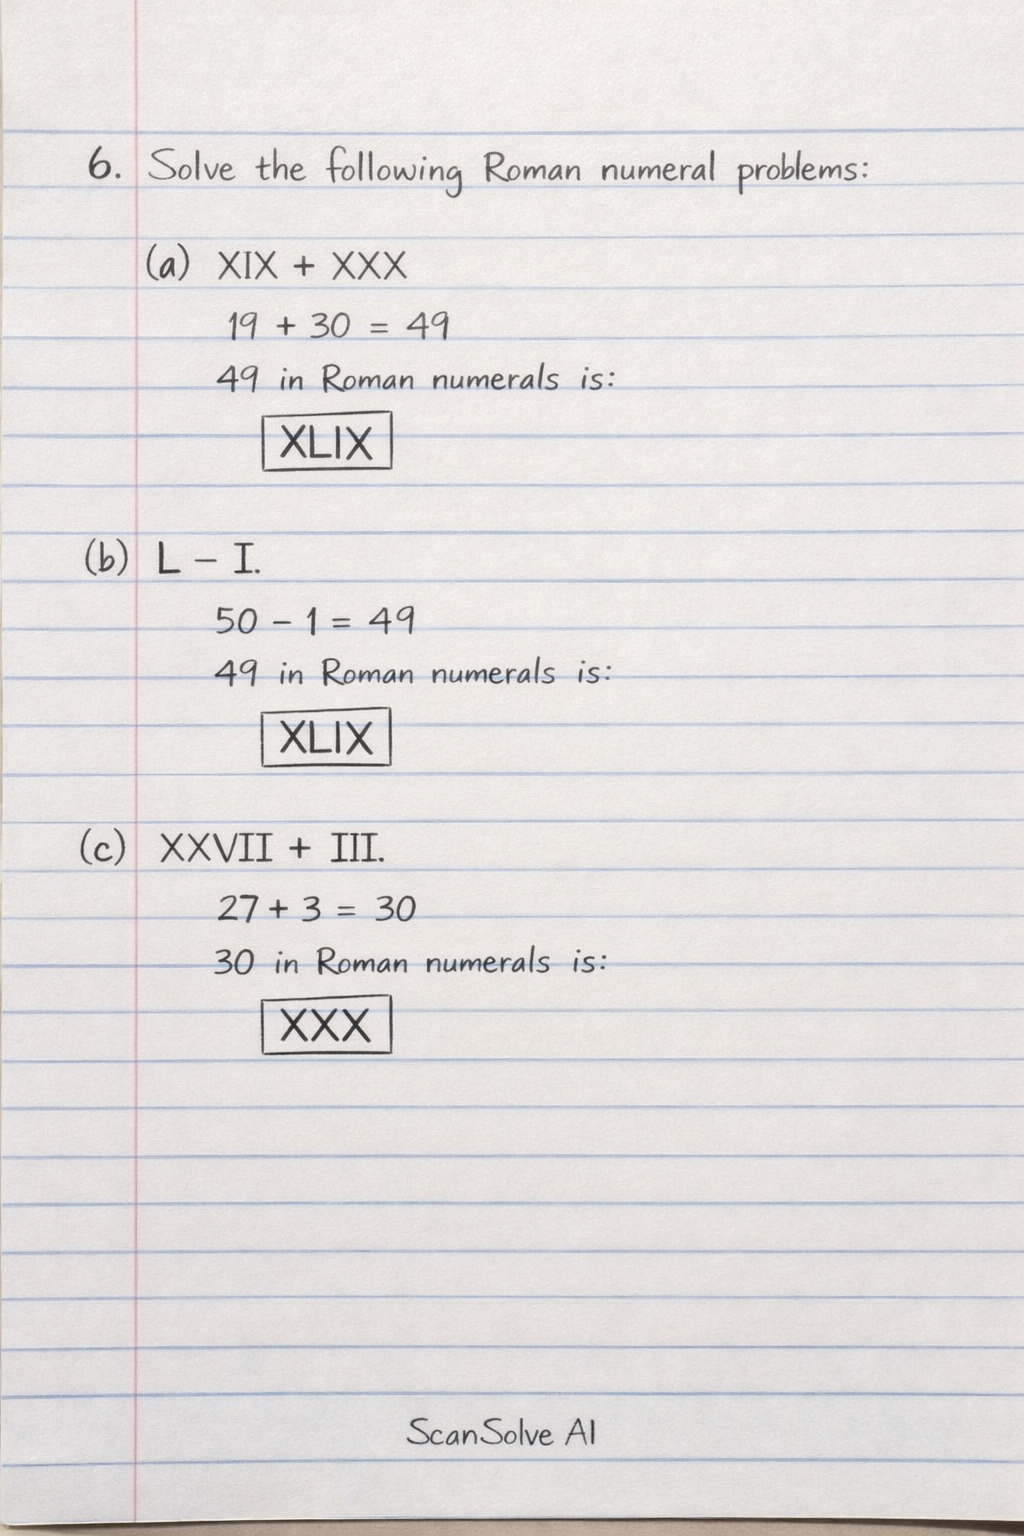 6. Solve the following Roman numeral problems:
(a) XIX + XXX
19 + 30 = 49
49 in Roman numerals is:
XLIX
(b) L - I.
50 - 1 = 49
49 in Roman numerals is:
XLIX
(c) XXVII + III.
27 + 3 = 30
30 in Roman numerals is:
XXX
ScanSolve AI